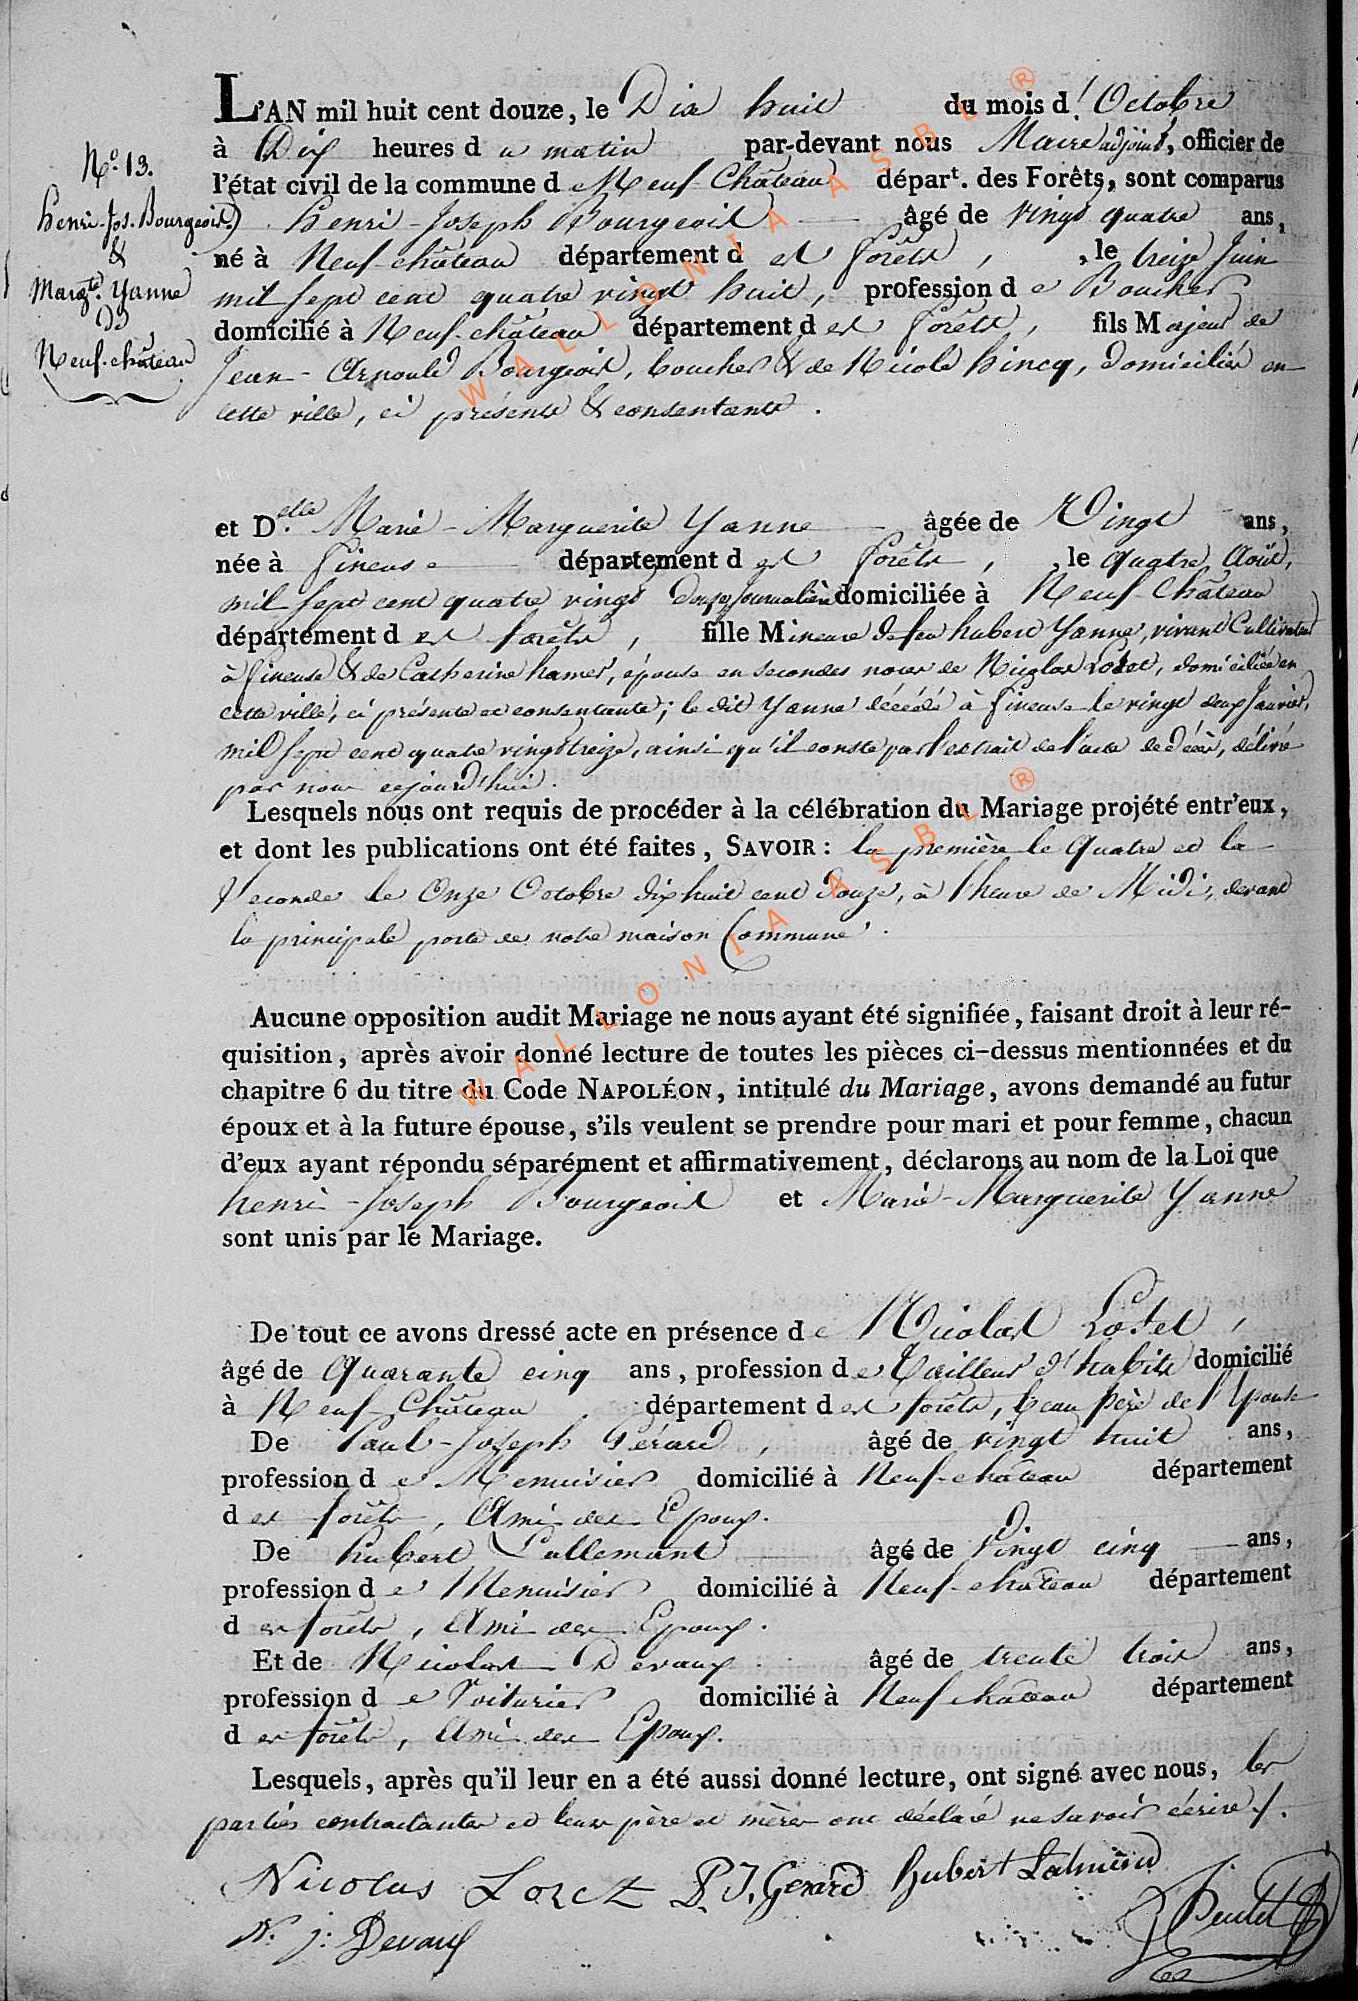 L'AN mil huit cent douze, le Dix huit du mois d'Octobre
à Dix heures du matin par-devant nous Maire adjoint, officier de
l'état civil de la commune de Neuf-Château départ. des Forêts, sont comparus
N.º 13.
Henri-Jos. Bourgeois
&
Margte. Yanne
de
Neuf-château
Henri-Joseph Bourgeois âgé de vingt quatre ans,
né à Neuf-château département des forêts, le treize Juin
mil sept cent quatre vingt huit, profession de Boucher
domicilié à Neuf-château département des forêts, fils Majeur de
Jean-Arnould Bourgeois, boucher & de Nicole hincq, domiciliés en
cette ville, ci présents & consentants.
et Delle. Marie-Marguerite Yanne âgée de Vingt ans,
née à fineuse département des forêts, le quatre Août,
mil sept cent quatre vingt douze, Journalière domiciliée à Neuf-Château
département des forêts, fille Mineure de feu hubert Yanne, vivant Cultivateur
à fineuse & de Catherine hames, épouse en secondes noces de Nicolas, domiciliée en
cette ville, ci présente et consentante; le dit Yanne décédé à fineuse le vingt deux Janvier,
mil sept cent quatre vingt treize, ainsi qu'il conste par l'extrait de l'acte de décès, délivré
par nous cejourd'hui.
Lesquels nous ont requis de procéder à la célébration du Mariage projété entr'eux,
et dont les publications ont été faites, SAVOIR: la première le Quatre et la
Seconde le Onze Octobre dix huit cent douze, à l'heure de Midi, devant
la principale porte de notre maison Commune.
Aucune opposition audit Mariage ne nous ayant été signifiée, faisant droit à leur ré-
quisition, après avoir donné lecture de toutes les pièces ci-dessus mentionnées et du
chapitre 6 du titre du Code NAPOLÉON, intitulé du Mariage, avons demandé au futur
époux et à la future épouse, s'ils veulent se prendre pour mari et pour femme, chacun
d'eux ayant répondu séparément et affirmativement, déclarons au nom de la Loi que
henri-Joseph Bourgeois et Marie-Marguerite Yanne
sont unis par le Mariage.
De tout ce avons dressé acte en présence de Nicolas,
âgé de quarante cinq ans, profession de Tailleur d'habits domicilié
à Neuf-Château département des forêts, beau père de l'Epouse
De Paul-Joseph Gérard, âgé de vingt huit ans,
profession de Menuisier domicilié à Neuf-château département
des forêts, Ami des Epoux.
De hubert Lallemant âgé de Vingt cinq ans,
profession de Menuisier domicilié à Neuf-château département
des forêts, Ami des Epoux.
Et de Nicolas Devaux âgé de trente trois ans,
profession de Voiturier domicilié à Neuf château département
des forêts, Ami des Epoux.
Lesquels, après qu'il leur en a été aussi donné lecture, ont signé avec nous, les
parties contractantes et leurs père et mères ont déclaré ne savoir écrire.
Nicolas P. J. Gerard hubert
N. j: Devaux
WALLONIA ASBL ®
WALLONIA ASBL ®